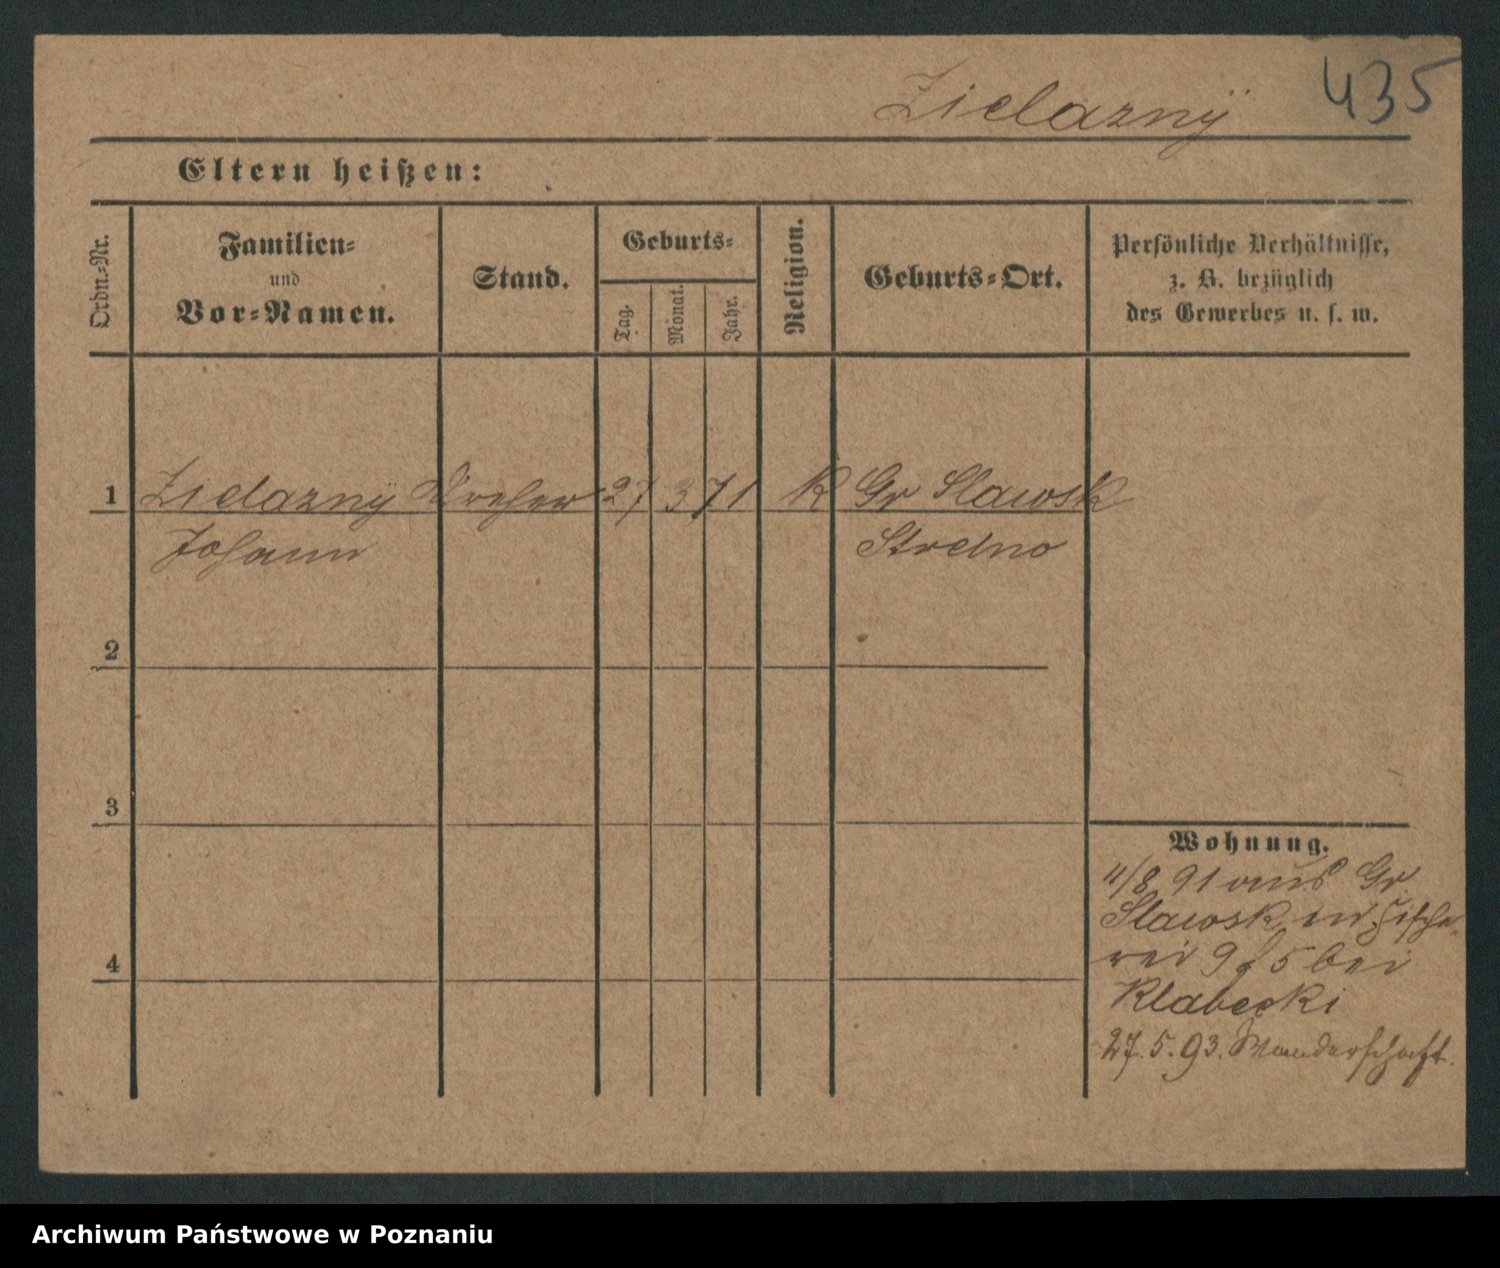 435
Zielazny
Eltern heißen:
Ordn.-Nr.
Familien-
und
Vor-Namen.
Stand.
Geburts-
Tag.
Monat.
Jahr.
Religion.
Geburts-Ort.
Persönliche Verhältnisse,
z. B. bezüglich
des Gewerbes u. s. w.
1 Zielazny Dreher 27 3 71 K Gr Slawsk
Johann Strelno
2
3
4
Wohnung.
11/8 91 aus Gr
Slawsk in Fische-
rei 9 f 5 bei
Klabecki
27.5.93. Wanderschaft.
Archiwum Państwowe w Poznaniu